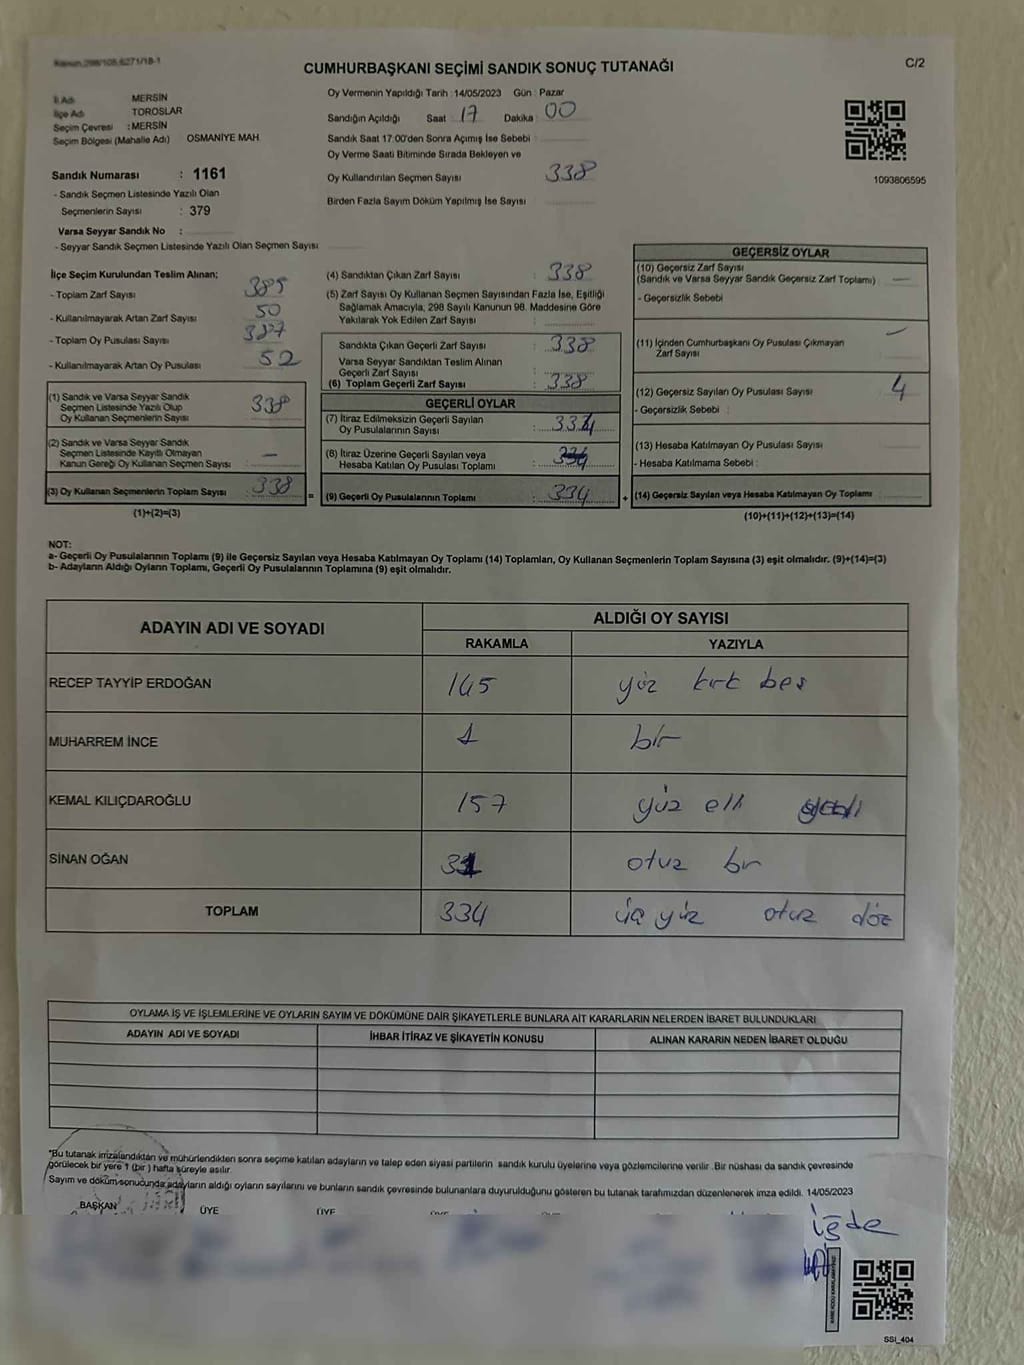 CUMHURBAŞKANI SEÇİMİ SANDIK SONUÇ TUTANAĞI
C/2
İl Adı MERSİN
İlçe Adı TOROSLAR
Seçim Çevresi : MERSİN
Seçim Bölgesi (Mahalle Adı) OSMANİYE MAH.
Sandık Numarası : 1161
- Sandık Seçmen Listesinde Yazılı Olan
Seçmenlerin Sayısı : 379
Varsa Seyyar Sandık No :
- Seyyar Sandık Seçmen Listesinde Yazılı Olan Seçmen Sayısı
Oy Vermenin Yapıldığı Tarih : 14/05/2023 Gün : Pazar
Sandığın Açıldığı Saat 17 Dakika 00
Sandık Saat 17:00'den Sonra Açılmış İse Sebebi
Oy Verme Saati Bitiminde Sırada Bekleyen ve
Oy Kullandırılan Seçmen Sayısı 338
Birden Fazla Sayım Döküm Yapılmış İse Sayısı
1093806595
İlçe Seçim Kurulundan Teslim Alınan;
- Toplam Zarf Sayısı 385
- Kullanılmayarak Artan Zarf Sayısı 50
- Toplam Oy Pusulası Sayısı 387
- Kullanılmayarak Artan Oy Pusulası 52
(1) Sandık ve Varsa Seyyar Sandık
Seçmen Listesinde Yazılı Olup
Oy Kullanan Seçmenlerin Sayısı 338
(2) Sandık ve Varsa Seyyar Sandık
Seçmen Listesinde Kayıtlı Olmayan
Kanun Gereği Oy Kullanan Seçmen Sayısı —
(3) Oy Kullanan Seçmenlerin Toplam Sayısı 338 =
(1)+(2)=(3)
(4) Sandıktan Çıkan Zarf Sayısı : 338
(5) Zarf Sayısı Oy Kullanan Seçmen Sayısından Fazla İse, Eşitliği
Sağlamak Amacıyla, 298 Sayılı Kanunun 98. Maddesine Göre
Yakılarak Yok Edilen Zarf Sayısı :
Sandıkta Çıkan Geçerli Zarf Sayısı : 338
Varsa Seyyar Sandıktan Teslim Alınan
Geçerli Zarf Sayısı :
(6) Toplam Geçerli Zarf Sayısı : 338
GEÇERLİ OYLAR
(7) İtiraz Edilmeksizin Geçerli Sayılan
Oy Pusulalarının Sayısı : 334
(8) İtiraz Üzerine Geçerli Sayılan veya
Hesaba Katılan Oy Pusulası Toplamı :
(9) Geçerli Oy Pusulalarının Toplamı : 334 +
GEÇERSİZ OYLAR
(10) Geçersiz Zarf Sayısı
(Sandık ve Varsa Seyyar Sandık Geçersiz Zarf Toplamı) —
- Geçersizlik Sebebi
(11) İçinden Cumhurbaşkanı Oy Pusulası Çıkmayan
Zarf Sayısı —
(12) Geçersiz Sayılan Oy Pusulası Sayısı 4
- Geçersizlik Sebebi :
(13) Hesaba Katılmayan Oy Pusulası Sayısı
- Hesaba Katılmama Sebebi :
(14) Geçersiz Sayılan veya Hesaba Katılmayan Oy Toplamı
(10)+(11)+(12)+(13)=(14)
NOT:
a- Geçerli Oy Pusulalarının Toplamı (9) ile Geçersiz Sayılan veya Hesaba Katılmayan Oy Toplamı (14) Toplamları, Oy Kullanan Seçmenlerin Toplam Sayısına (3) eşit olmalıdır. (9)+(14)=(3)
b- Adayların Aldığı Oyların Toplamı, Geçerli Oy Pusulalarının Toplamına (9) eşit olmalıdır.
ADAYIN ADI VE SOYADI ALDIĞI OY SAYISI
RAKAMLA YAZIYLA
RECEP TAYYİP ERDOĞAN 145 yüz kırk beş
MUHARREM İNCE 1 bir
KEMAL KILIÇDAROĞLU 157 yüz elli yedi
SİNAN OĞAN 31 otuz bir
TOPLAM 334 üç yüz otuz döz
OYLAMA İŞ VE İŞLEMLERİNE VE OYLARIN SAYIM VE DÖKÜMÜNE DAİR ŞİKAYETLERLE BUNLARA AİT KARARLARIN NELERDEN İBARET BULUNDUKLARI
ADAYIN ADI VE SOYADI İHBAR İTİRAZ VE ŞİKAYETİN KONUSU ALINAN KARARIN NEDEN İBARET OLDUĞU
"Bu tutanak imzalandıktan ve mühürlendikten sonra seçime katılan adayların ve talep eden siyasi partilerin sandık kurulu üyelerine veya gözlemcilerine verilir. Bir nüshası da sandık çevresinde
görülecek bir yere 1 (bir ) hafta süreyle asılır.
Sayım ve döküm sonucunda adayların aldığı oyların sayılarını ve bunların sandık çevresinde bulunanlara duyurulduğunu gösteren bu tutanak tarafımızdan düzenlenerek imza edildi. 14/05/2023
BAŞKAN ÜYE ÜYE
SSI_404